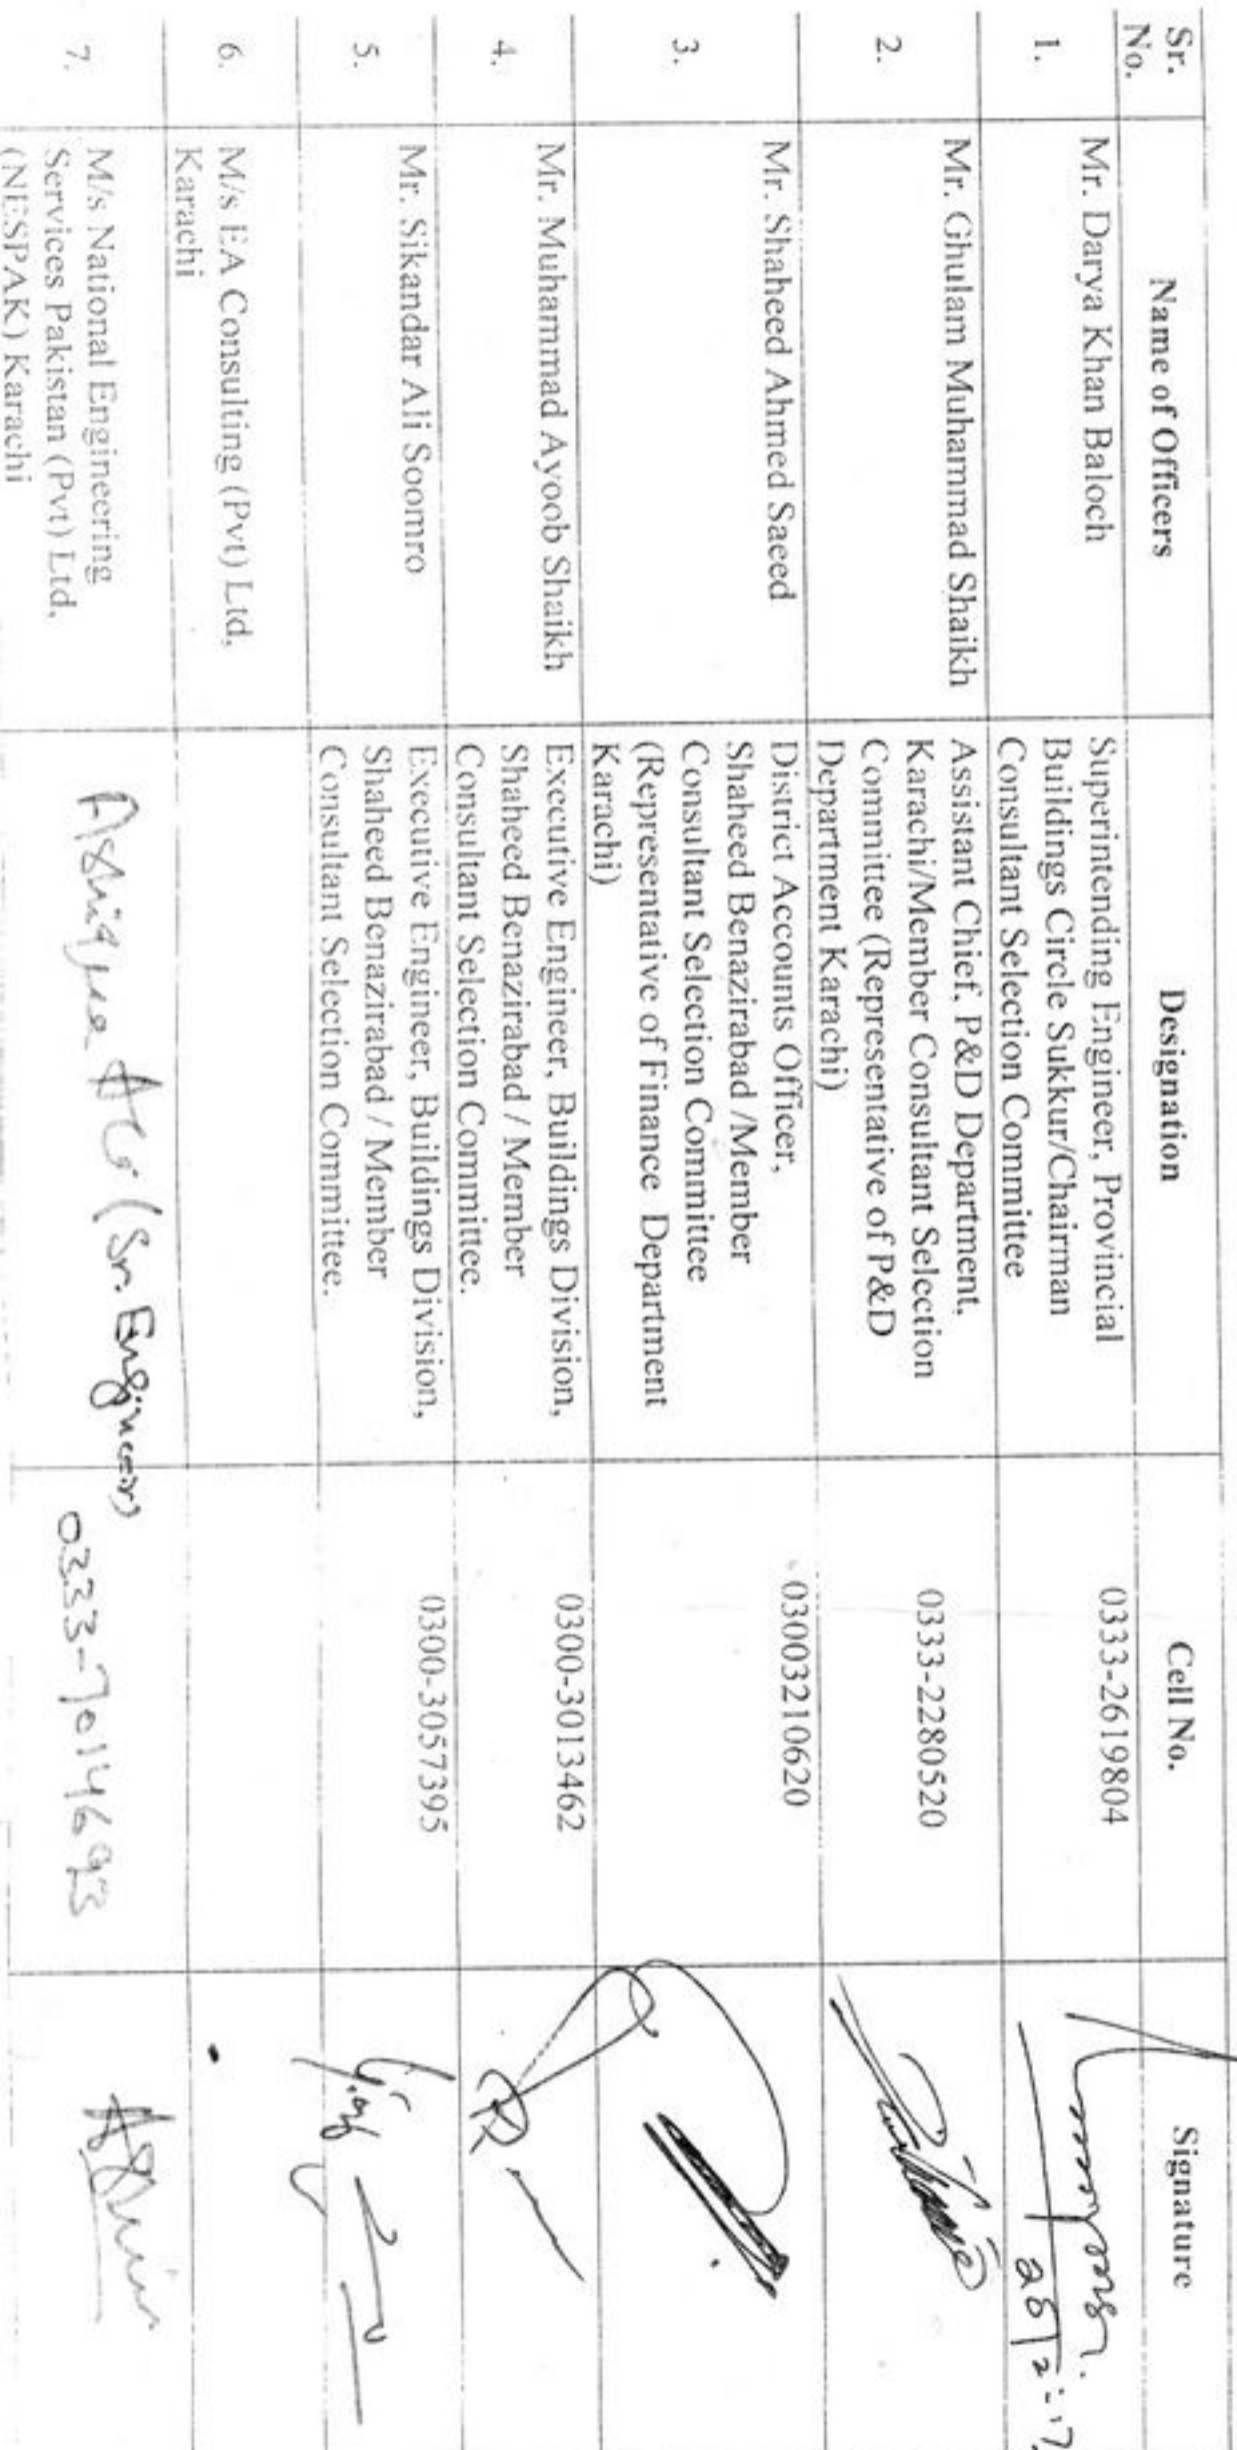 Sr.
No.
Name of Officers
Designation
Cell No.
Signature
1.
Mr. Darya Khan Baloch
Superintending Engineer, Provincial
Buildings Circle Sukkur/Chairman
Consultant Selection Committee
0333-2619804
2.
Mr. Ghulam Muhammad Shaikh
Assistant Chief, P&D Department,
Karachi/Member Consultant Selection
Committee (Representative of P&D
Department Karachi)
0333-2280520
3.
Mr. Shaheed Ahmed Saeed
District Accounts Officer,
Shaheed Benazirabad /Member
Consultant Selection Committee
(Representative of Finance Department
Karachi)
03003210620
4.
Mr. Muhammad Ayoob Shaikh
Executive Engineer, Buildings Division,
Shaheed Benazirabad / Member
Consultant Selection Committee.
0300-3013462
5.
Mr. Sikandar Ali Soomro
Executive Engineer, Buildings Division,
Shaheed Benazirabad / Member
Consultant Selection Committee.
0300-3057395
6.
M/s EA Consulting (Pvt) Ltd,
Karachi
7.
M/s National Engineering
Services Pakistan (Pvt) Ltd,
(NESPAK) Karachi
(Sr. Engineer)
0333-7014693